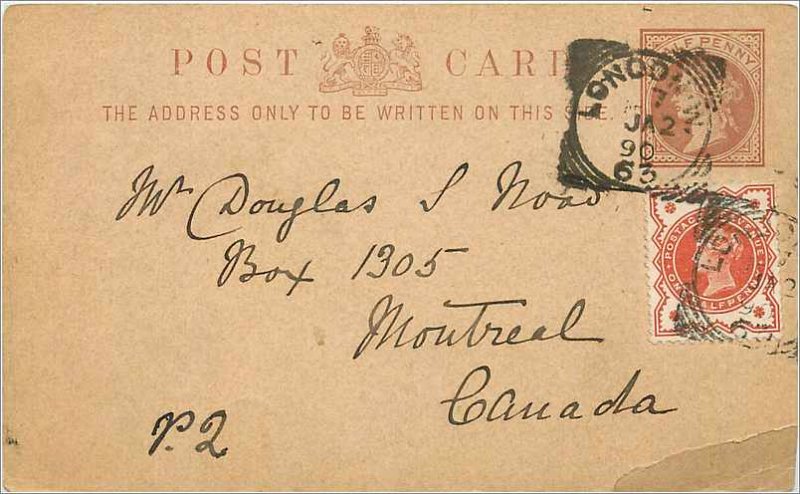 POST CARD
THE ADDRESS ONLY TO BE WRITTEN ON THIS SIDE.
HALF PENNY
LONDON.W
7
JA 2
90
62
POSTAGE REVENUE
ONE HALFPENNY
LO
Mr Douglas S Noad
Box 1305
Montreal
Canada
P.2